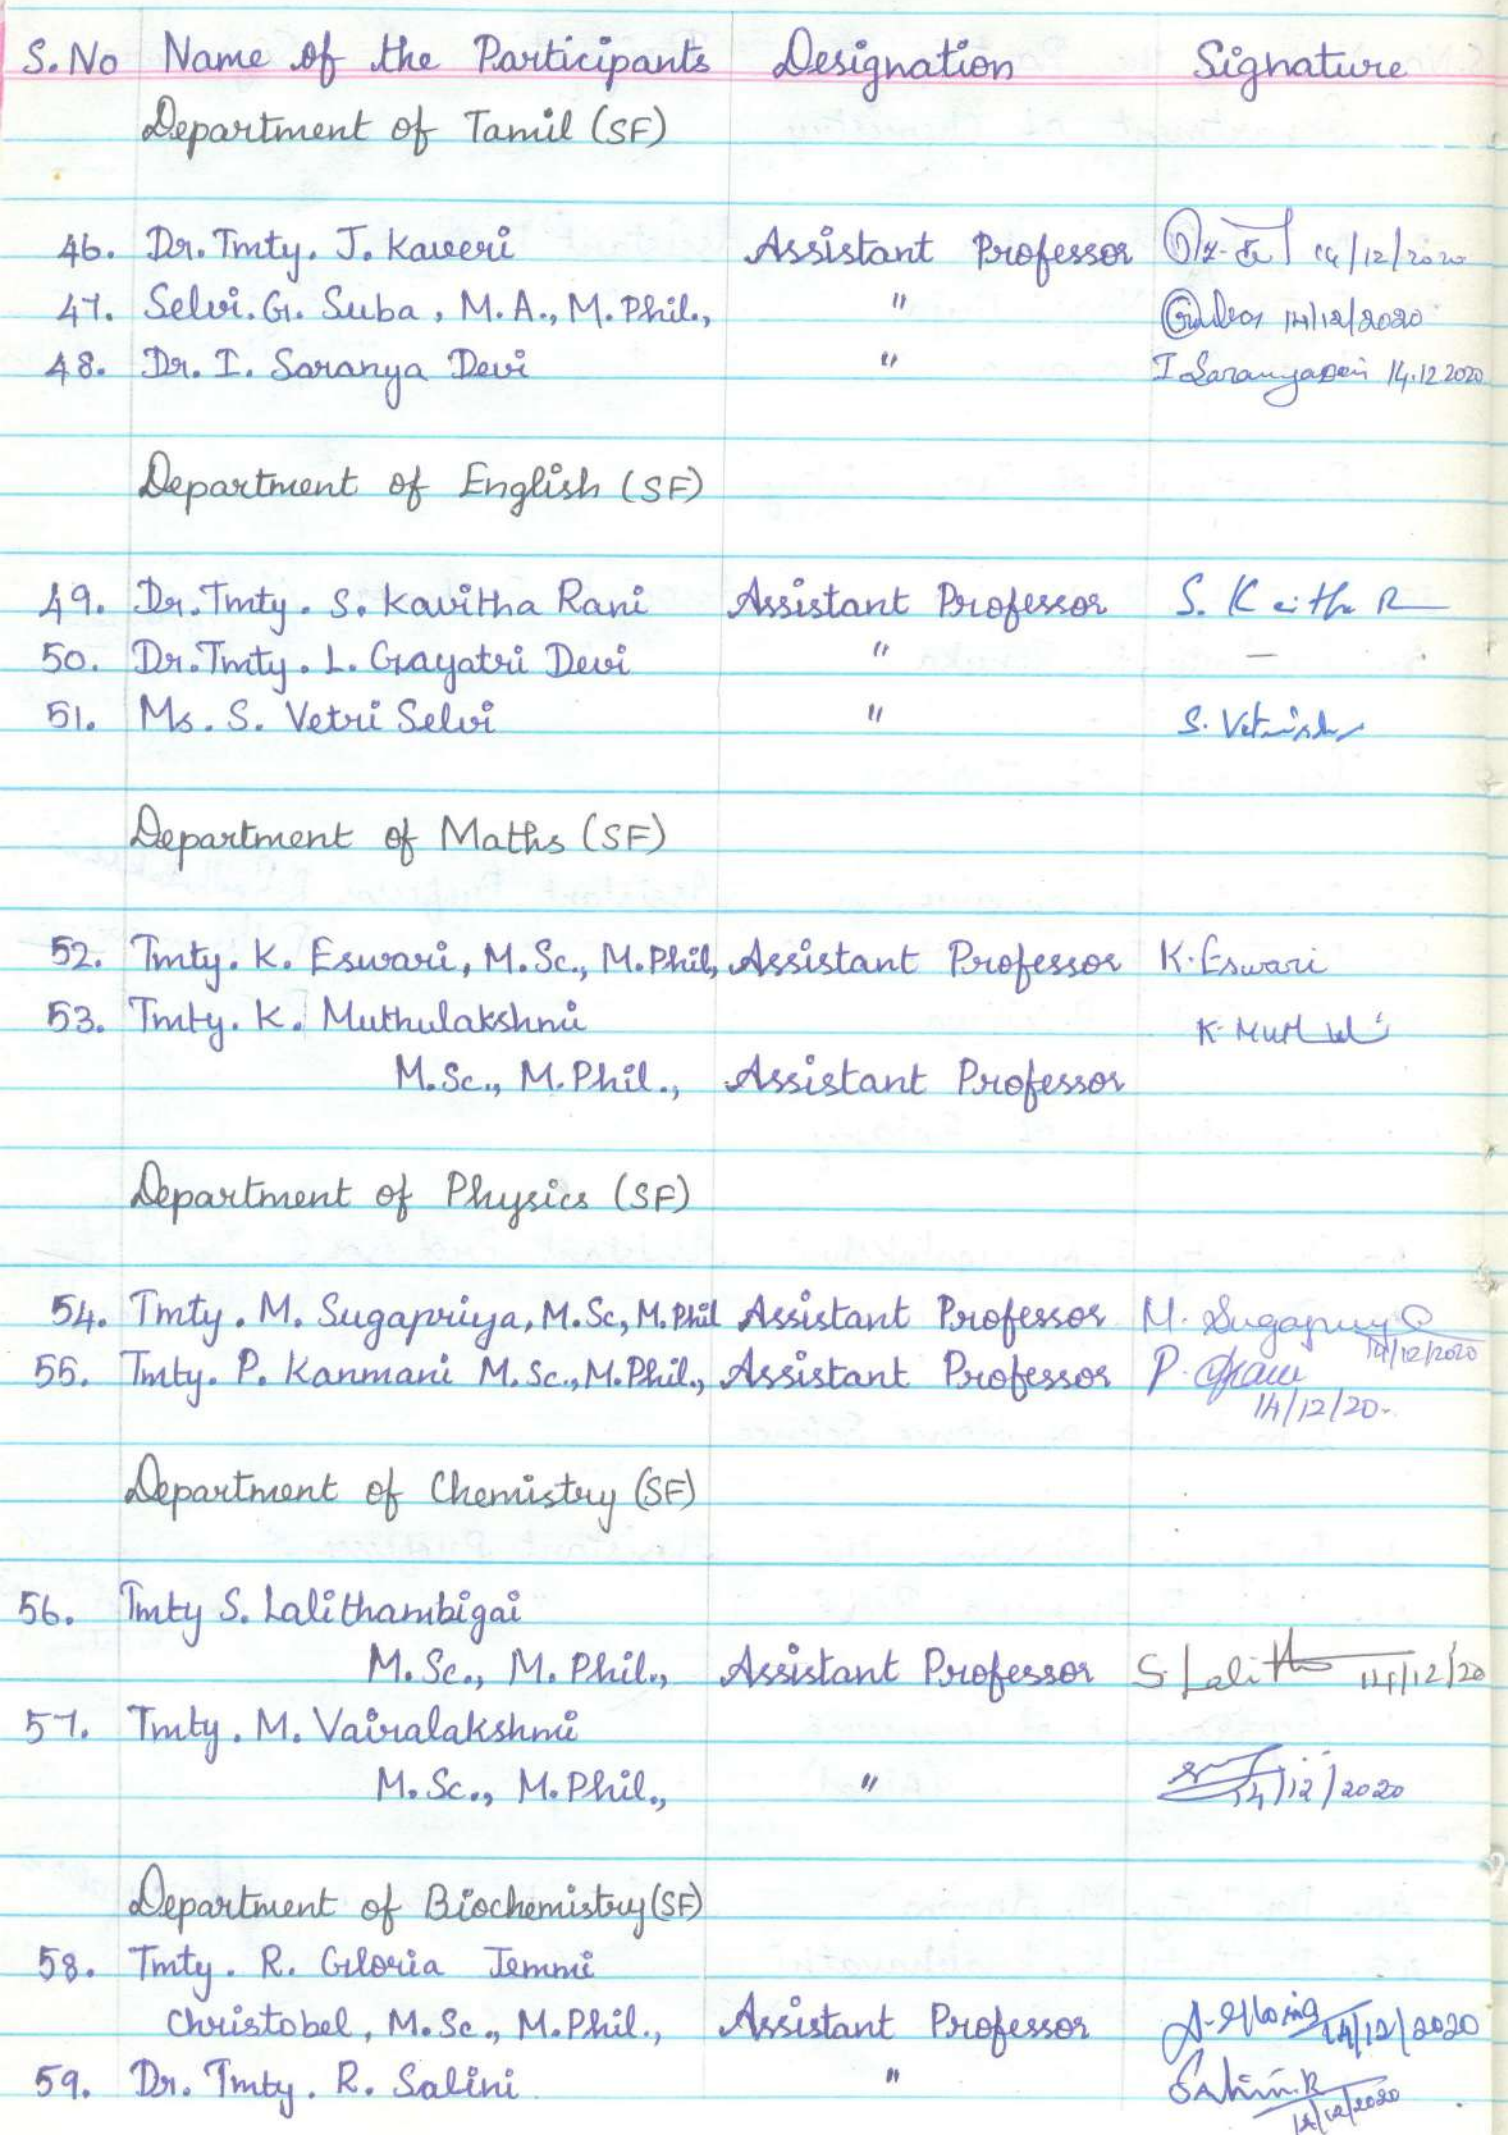 S.No Name of the Participants Designation Signature
Department of Tamil (SF)
46. Dr. Tmty. J. Kaveri Assistant Professor 14/12/2020
47. Selvi. G. Suba, M.A., M.Phil., " 14/12/2020
48. Dr. I. Saranya Devi " I Saranyadevi 14.12.2020
Department of English (SF)
49. Dr. Tmty. S. Kavitha Rani Assistant Professor S. K itha R
50. Dr. Tmty. L. Gayatri Devi " —
51. Ms. S. Vetri Selvi " S.
Department of Maths (SF)
52. Tmty. K. Eswari, M.Sc., M.Phil, Assistant Professor K. Eswari
53. Tmty. K. Muthulakshmi K.
M.Sc., M.Phil., Assistant Professor
Department of Physics (SF)
54. Tmty. M. Sugapriya, M.Sc, M.Phil Assistant Professor M. Sugapriya
14/12/2020
55. Tmty. P. Kanmani M.Sc., M.Phil., Assistant Professor P.
14/12/20.
Department of Chemistry (SF)
56. Tmty S. Lalithambigai
M.Sc., M.Phil., Assistant Professor S. Lalitha 14/12/20
57. Tmty. M. Vairalakshmi
M.Sc., M.Phil., " 14/12/2020
Department of Biochemistry (SF)
58. Tmty. R. Gloria Jemmi
Christobel, M.Sc., M.Phil., Assistant Professor 14/12/2020
59. Dr. Tmty. R. Salini " Salini.R
14/12/2020